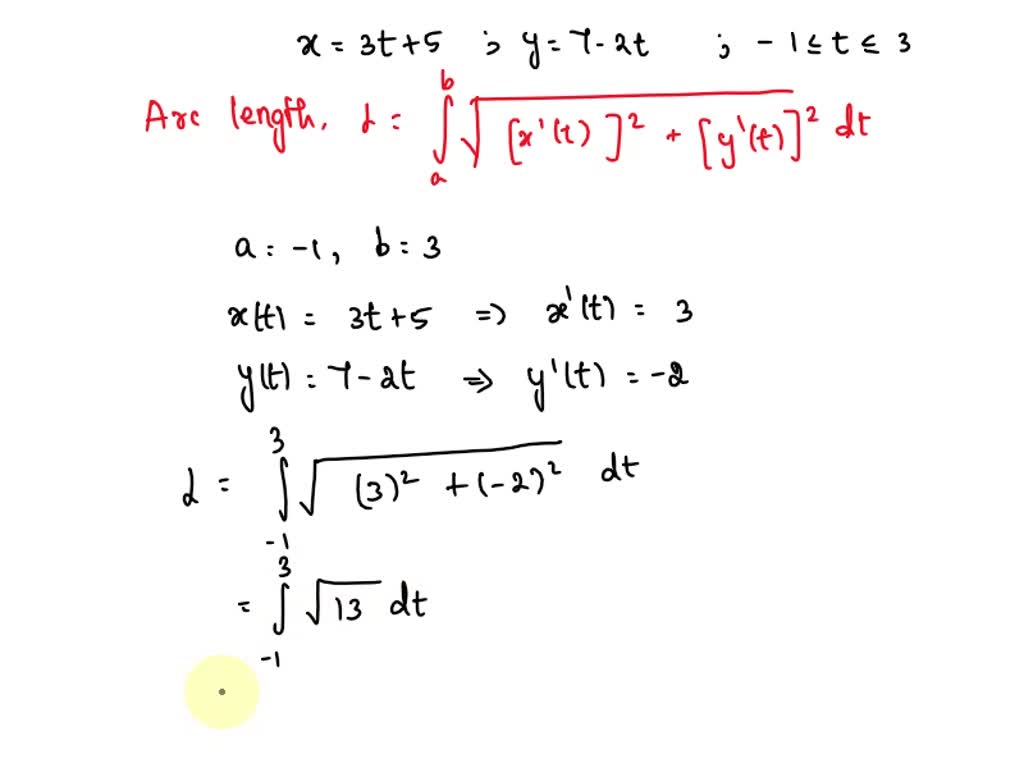 x = 3t+5 ; y = 7-2t ; -1 ≤ t ≤ 3
Arc length, L = ∫_a^b √([x'(t)]² + [y'(t)]²) dt
a = -1, b = 3
x(t) = 3t+5 ⇒ x'(t) = 3
y(t) = 7-2t ⇒ y'(t) = -2
L = ∫_{-1}^{3} √((3)² + (-2)²) dt
= ∫_{-1}^{3} √13 dt